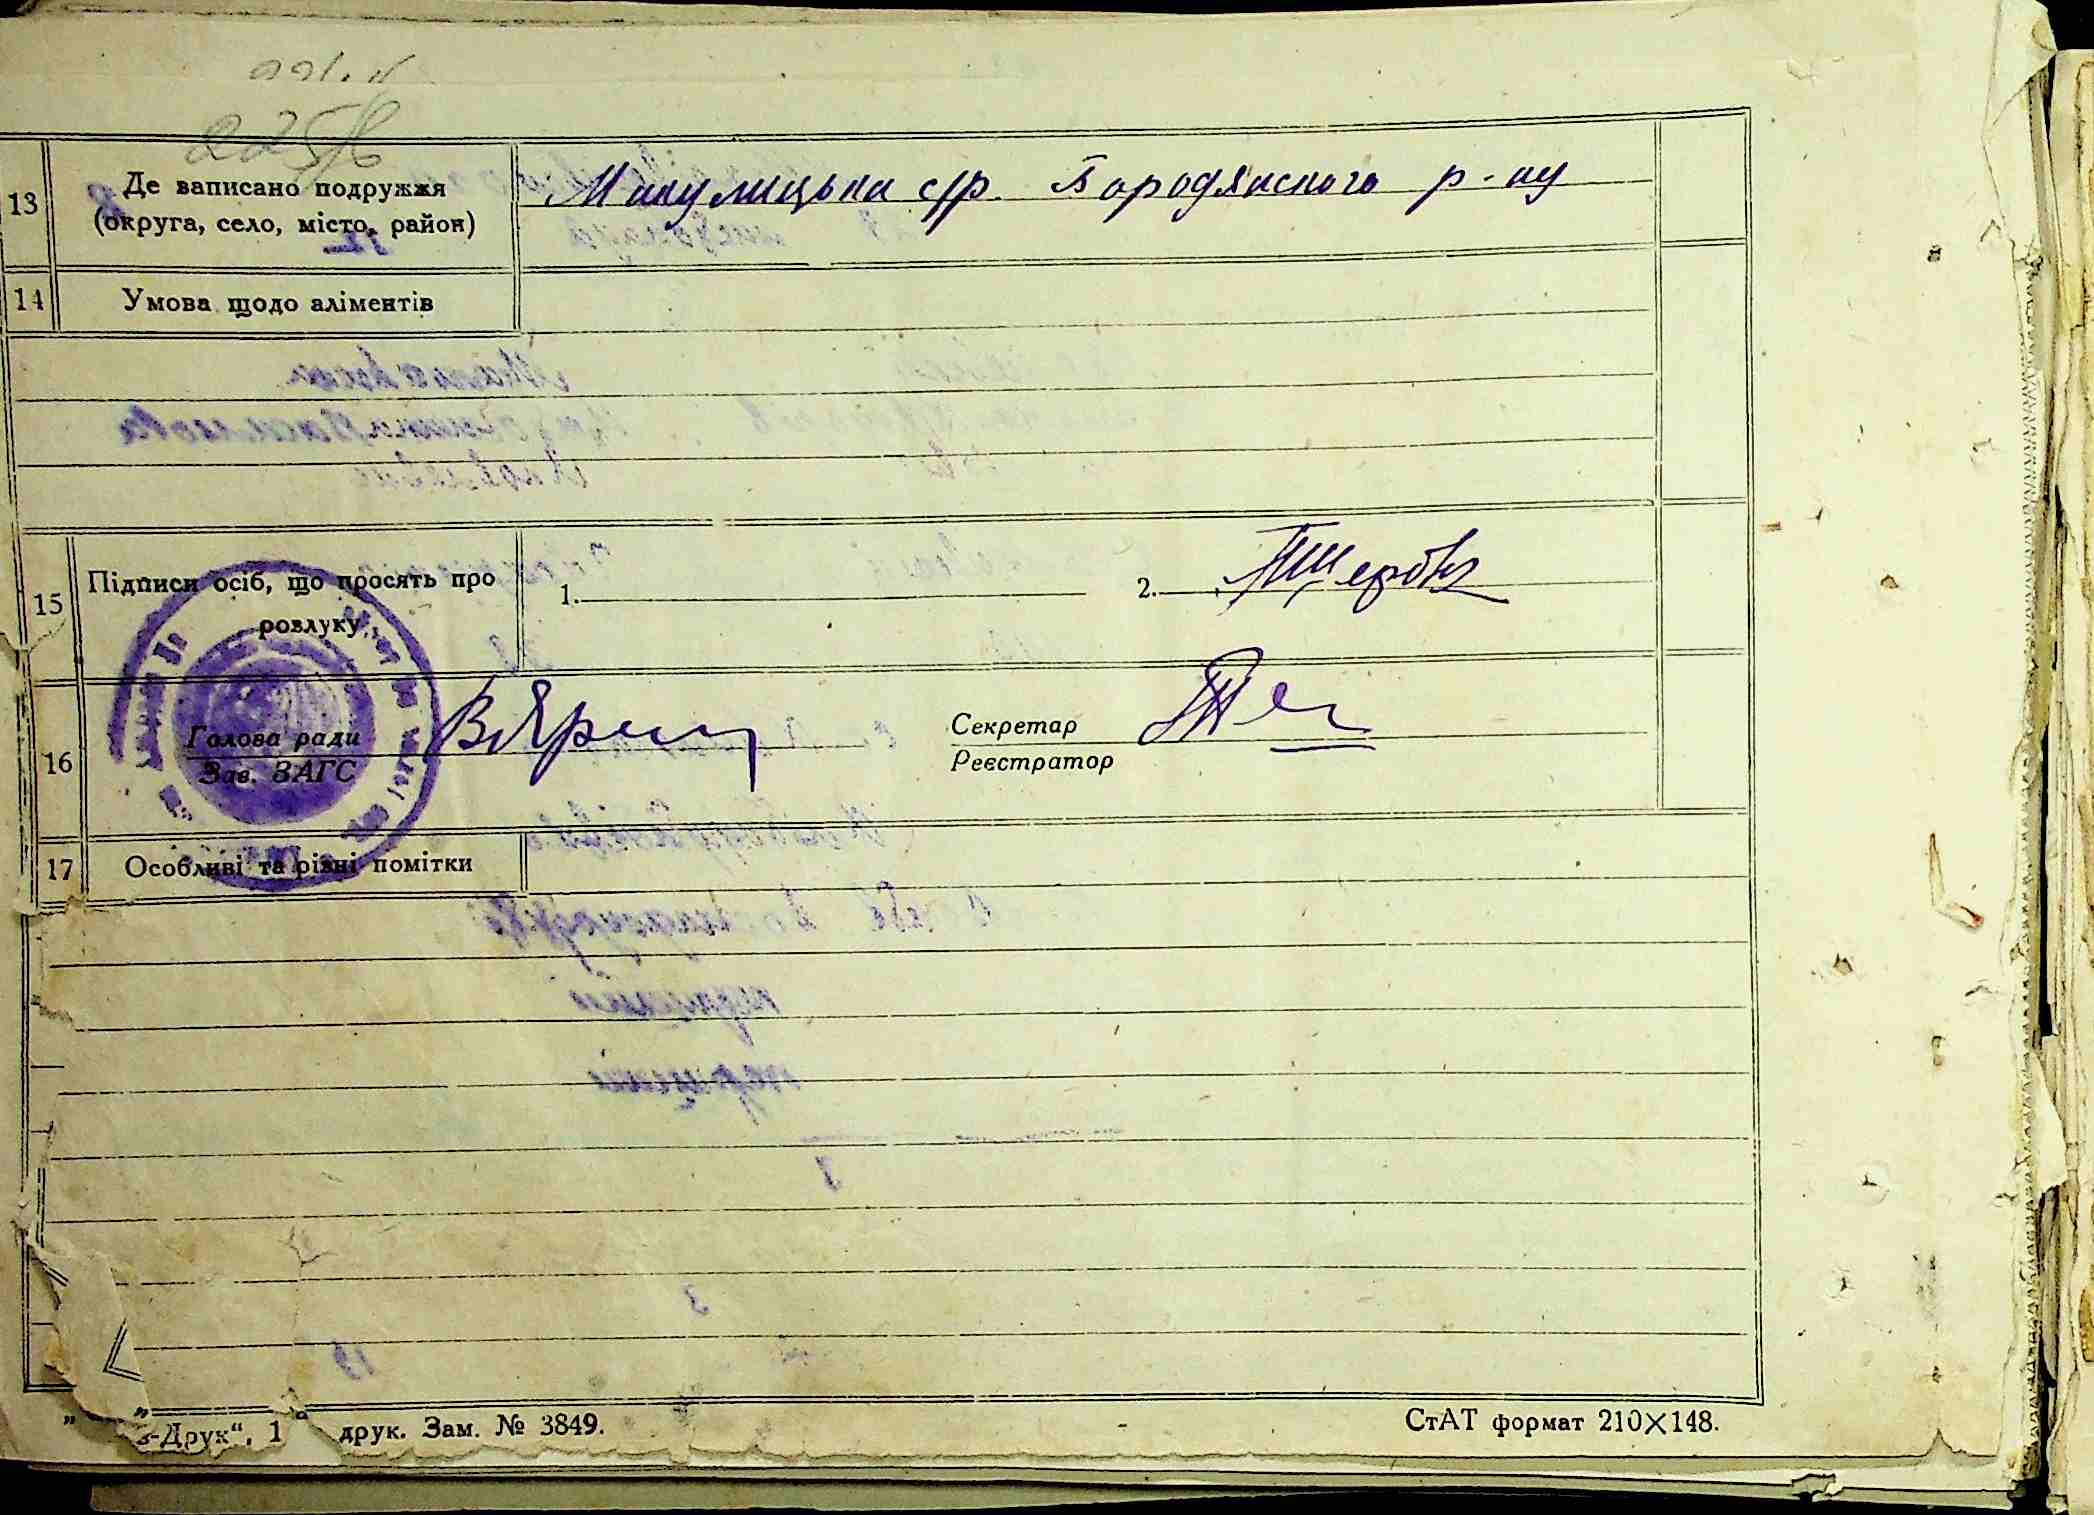 225/6
13
Де записано подружжя
(округа, село, місто, район)
Микулицька с/р. Бородянсного р-ну
14
Умова щодо аліментів
15
Підписи осіб, що просять про
розлуку
1.
2.
16
Голова ради
Зав. ЗАГС
Секретар
Реєстратор
17
Особливі та різні помітки
-Друк“, 1 друк. Зам. № 3849.
СтАТ формат 210×148.